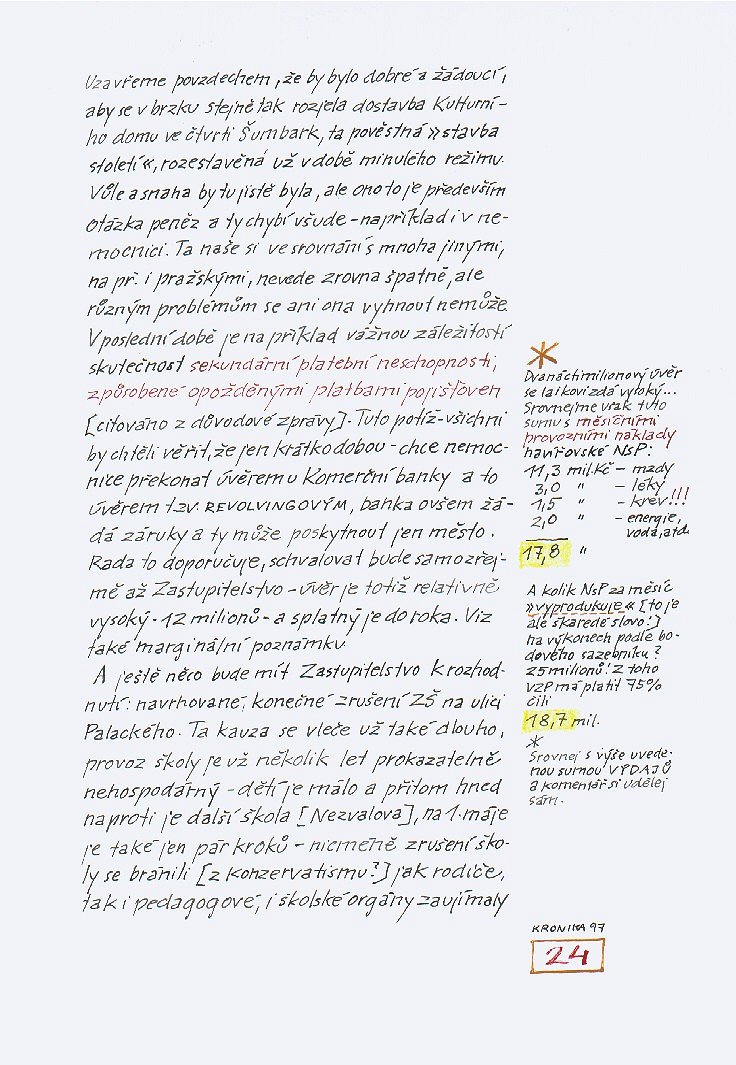 Uzavřeme povzdechem, že by bylo dobré a žádoucí,
aby se v brzku stejně tak rozjela dostavba Kulturní-
ho domu ve čtvrti Šumbark, ta pověstná »stavba
století«, rozestavěná už v době minulého režimu.
Vůle a snaha by tu jistě byla, ale ono to je především
otázka peněz a ty chybí všude - například i v ne-
mocnici. Ta naše si ve srovnání s mnoha jinými,
na př. i pražskými, nevede zrovna špatně, ale
různým problémům se ani ona vyhnout nemůže.
V poslední době je například vážnou záležitostí
skutečnost sekundární platební neschopnosti,
způsobené opožděnými platbami pojišťoven
[citováno z důvodové zprávy]. Tuto potíž - všichni
by chtěli věřit, že jen krátkodobou - chce nemoc-
nice překonat úvěrem u Komerční banky a to
úvěrem tzv. REVOLVINGOVÝM, banka ovšem žá-
dá záruky a ty může poskytnout jen město.
Rada to doporučuje, schvalovat bude samozřej-
mě až Zastupitelstvo - úvěr je totiž relativně
vysoký - 12 milionů - a splatný je do roka. Viz
také marginální poznámku.
A ještě něco bude mít Zastupitelstvo k rozhod-
nutí: navrhované, konečné zrušení ZŠ na ulici
Palackého. Ta kauza se vleče už také dlouho,
provoz školy je už několik let prokazatelně
nehospodárný - dětí je málo a přitom hned
naproti je další škola [Nezvalova], na 1. máje
je také jen pár kroků - nicméně zrušení ško-
ly se bránili [z konzervatismu?] jak rodiče,
tak i pedagogové, i školské orgány zaujímaly
*
Dvanáctimilionový úvěr
se laikovi zdá vysoký...
Srovnejme však tuto
sumu s měsíčními
provozními náklady
havířovské NsP:
11,3 mil. Kč - mzdy
3,0 " - léky
1,5 " - krev!!!
2,0 " - energie,
voda, atd.
17,8 "
A kolik NsP za měsíc
»vyprodukuje« [to je
ale škaredé slovo!]
na výkonech podle bo-
dového sazebníku?
25 milionů! Z toho
VZP má platit 75%
čili
18,7 mil.
*
Srovnej s výše uvede-
nou sumou VÝDAJŮ
a komentář si udělej
sám.
KRONIKA 97
24